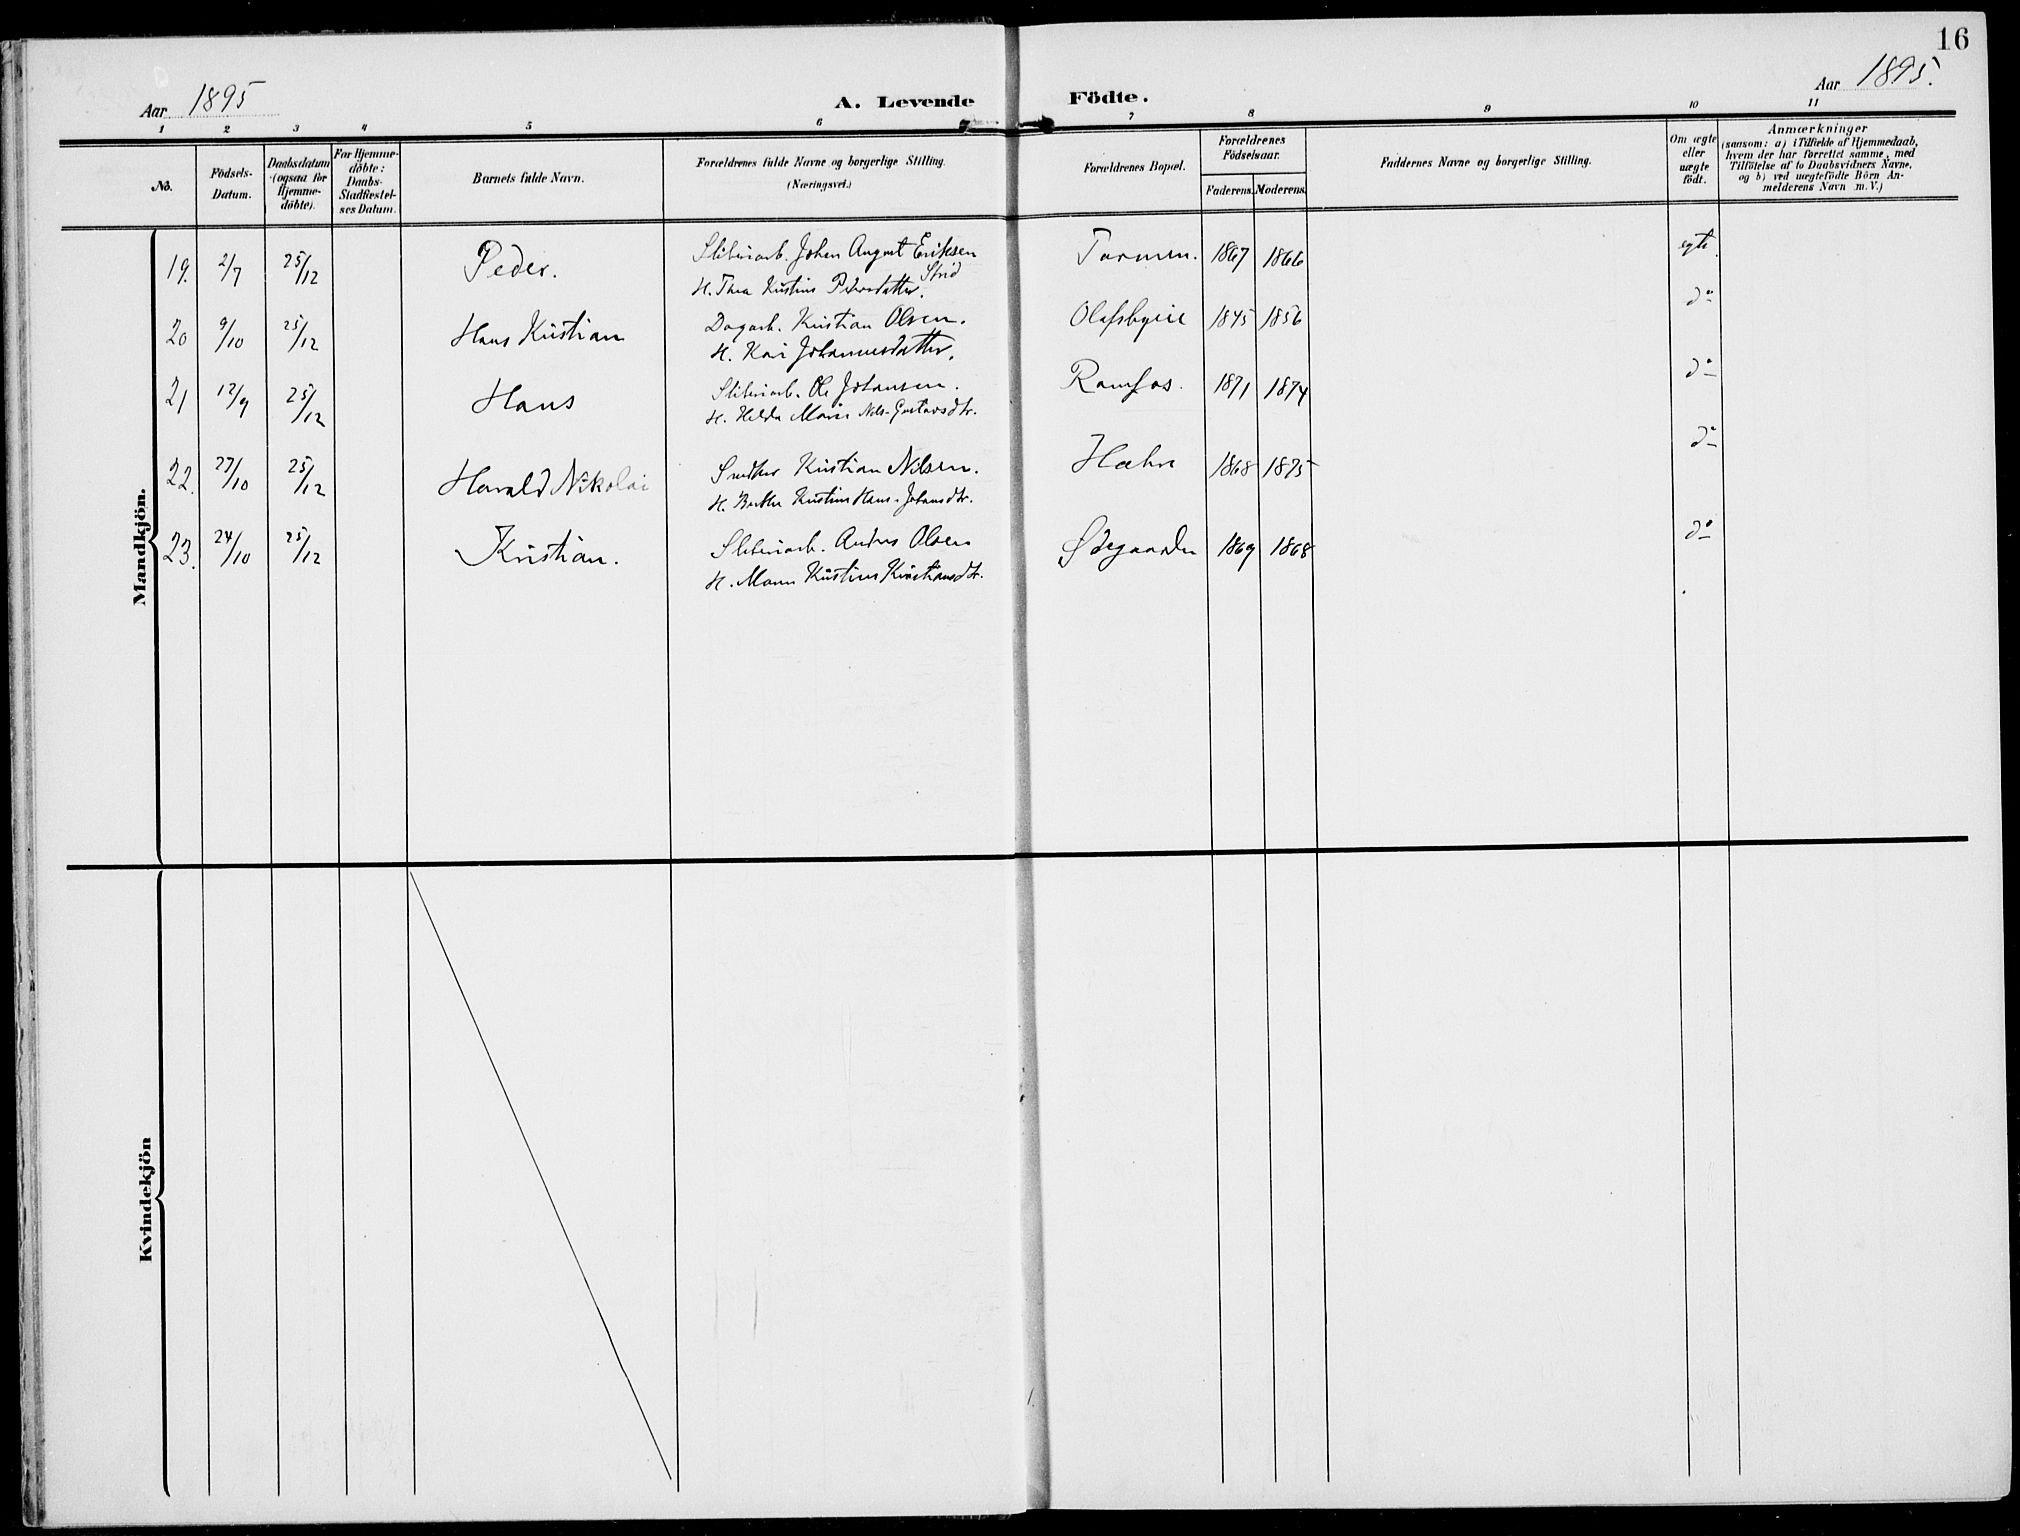 16
Aar 1895
A. Levende Födte.
Aar 1895.
1 2 3 4 5 6 7 8 9 10 11
No.
Födsels-
Datum.
Daabsdatum
(ogsaa for
Hjemme-
döbte).
For Hjemme-
döbte:
Daabs-
Stadfæstel-
ses Datum.
Barnets fulde Navn.
Forældrenes fulde Navne og borgerlige Stilling.
(Næringsvei.)
Forældrenes Bopæl.
Forældrenes
Födselsaar.
Faderens. Moderens.
Faddernes Navne og borgerlige Stilling.
Om ægte
eller
uægte
födt.
Anmærkninger
(saasom: a) i Tilfælde af Hjemmedaab,
hvem der har forrettet samme, med
Tilföielse af to Daabsvidners Navne,
og b) ved uægtefödte Börn An-
melderens Navn m. V.)
Mandkjön.
19. 2/7 25/12 Peder. Sliberiarb. Johan August Eriksen 1867 1866 egte.
Strid
H. Thea Kristine Pedersdatter.
20 9/10 25/12 Hans Kristian Dagarb. Kristian Olsen. Olafsbyeie 1845 1856 do
H. Kari Johannesdatter.
21 12/9 25/12 Hans Sliberiarb. Ole Johansen. Ramfos. 1871 1874 do
H. Helda Marie Nils-Gustavsdtr.
22. 27/10 25/12 Harald Nikolai Kristian Nilsen. 1868 1875 do
H. Berthe Kristine Hans-Johansdtr.
23. 24/10 25/12 Kristian. Sliberiarb. Anders Olsen Ødegaarden 1869 1868 do
H. Maren Kristine Kristiansdtr.
Kvindekjön